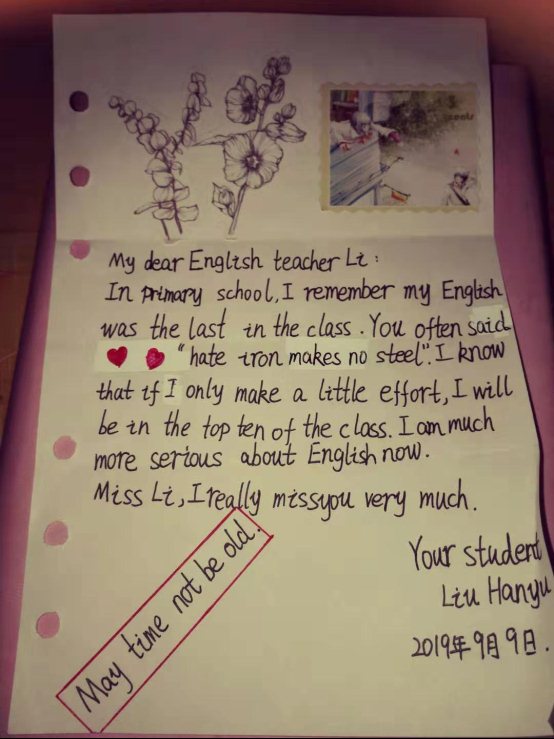 My dear English teacher Li:
In primary school, I remember my English
was the last in the class. You often said
"hate iron makes no steel". I know
that if I only make a little effort, I will
be in the top ten of the class. I am much
more serious about English now.
Miss Li, I really miss you very much.
May time not be old.
Your student
Liu Hanyu
2019年9月9日.